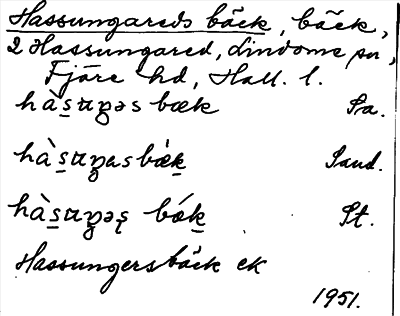 Hassungareds bäck, bäck,
2 Hassungared, Lindome sn,
Fjäre hd, Hall. l.
hàs̠ɯŋəs bæk Sa.
hàs̠ɯŋasbæ̀k̠ Sand.
hàs̠ɯŋəs bǽk̠ St.
Hassungersbäck ek
1951.